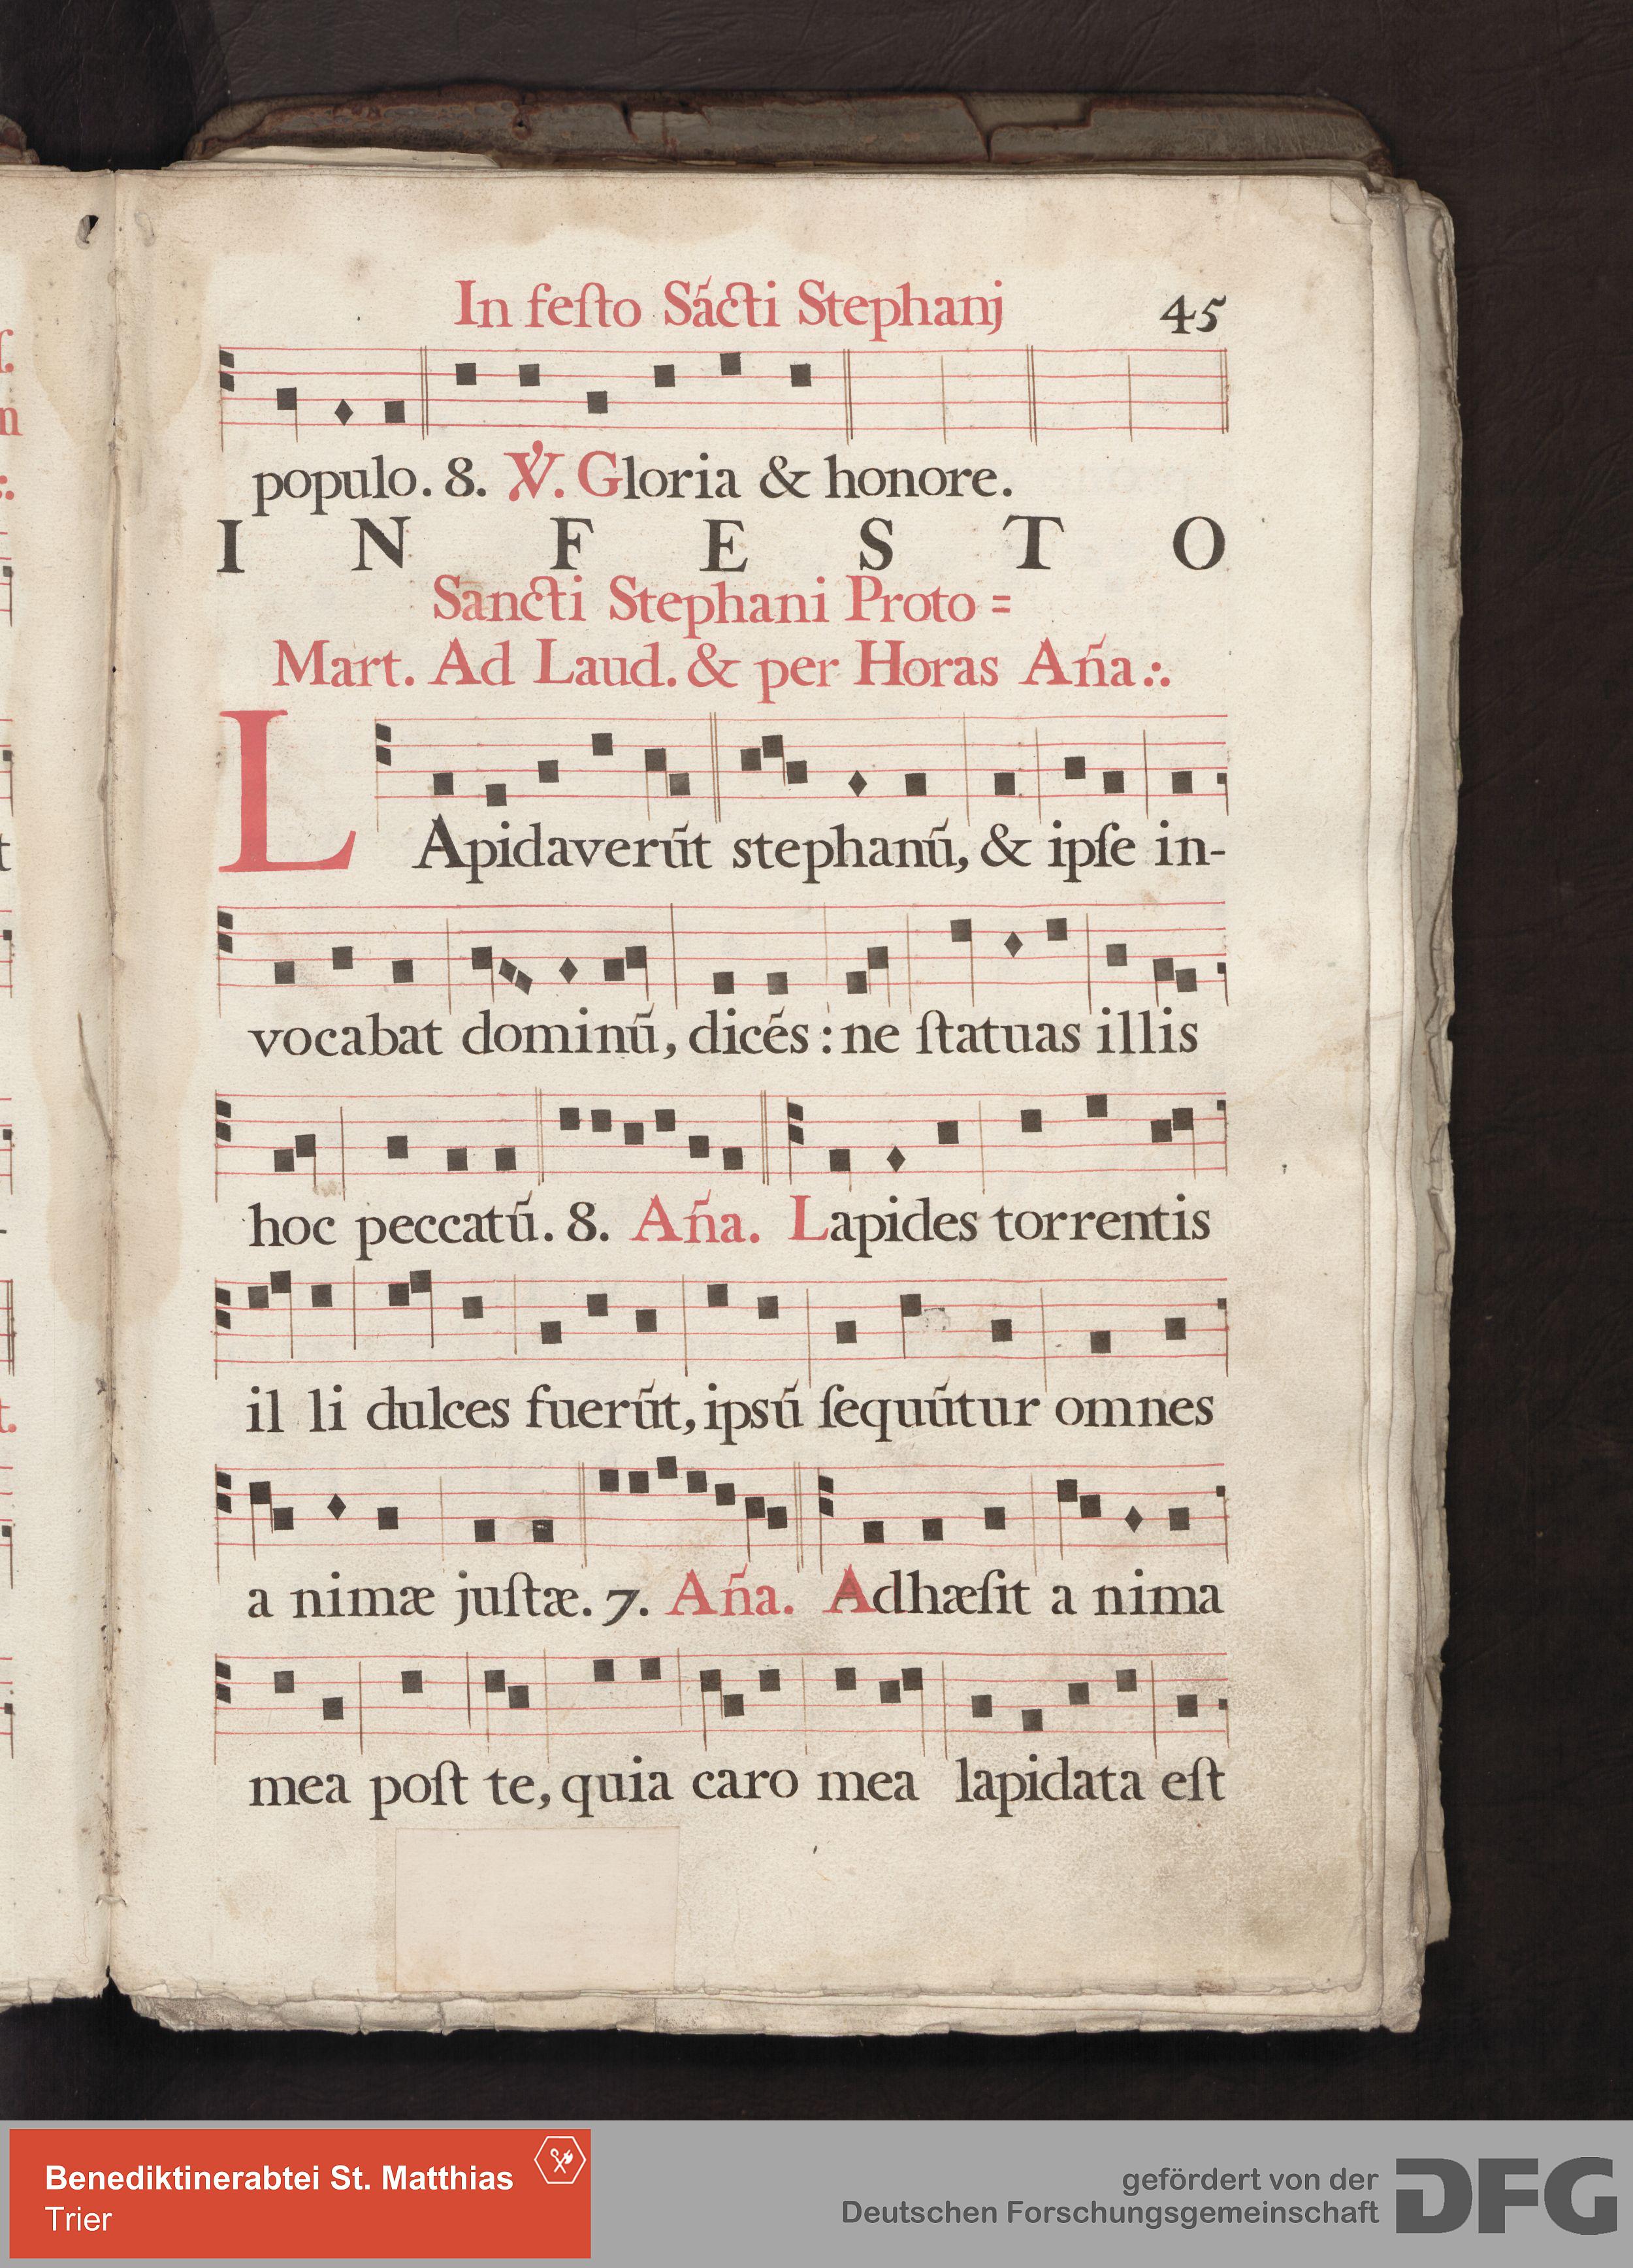 In feſto Sácti Stephanj 45
populo. 8. ℣. Gloria & honore.
I N F E S T O
Sancti Stephani Proto =
Mart. Ad Laud. & per Horas Ana̅ ∴
LApidaveru̅t stephanu̅, & ipſe in-
vocabat dominu̅, dice̅s : ne ſtatuas illis
hoc peccatu̅. 8. An̅a. Lapides torrentis
il li dulces fueru̅t, ipsu̅ ſequu̅tur omnes
a nimæ juſtæ. 7. An̅a. Adhæſit a nima
mea poſt te, quia caro mea lapidata eſt
Benediktinerabtei St. Matthias
Trier
gefördert von der
Deutschen Forschungsgemeinschaft
DFG